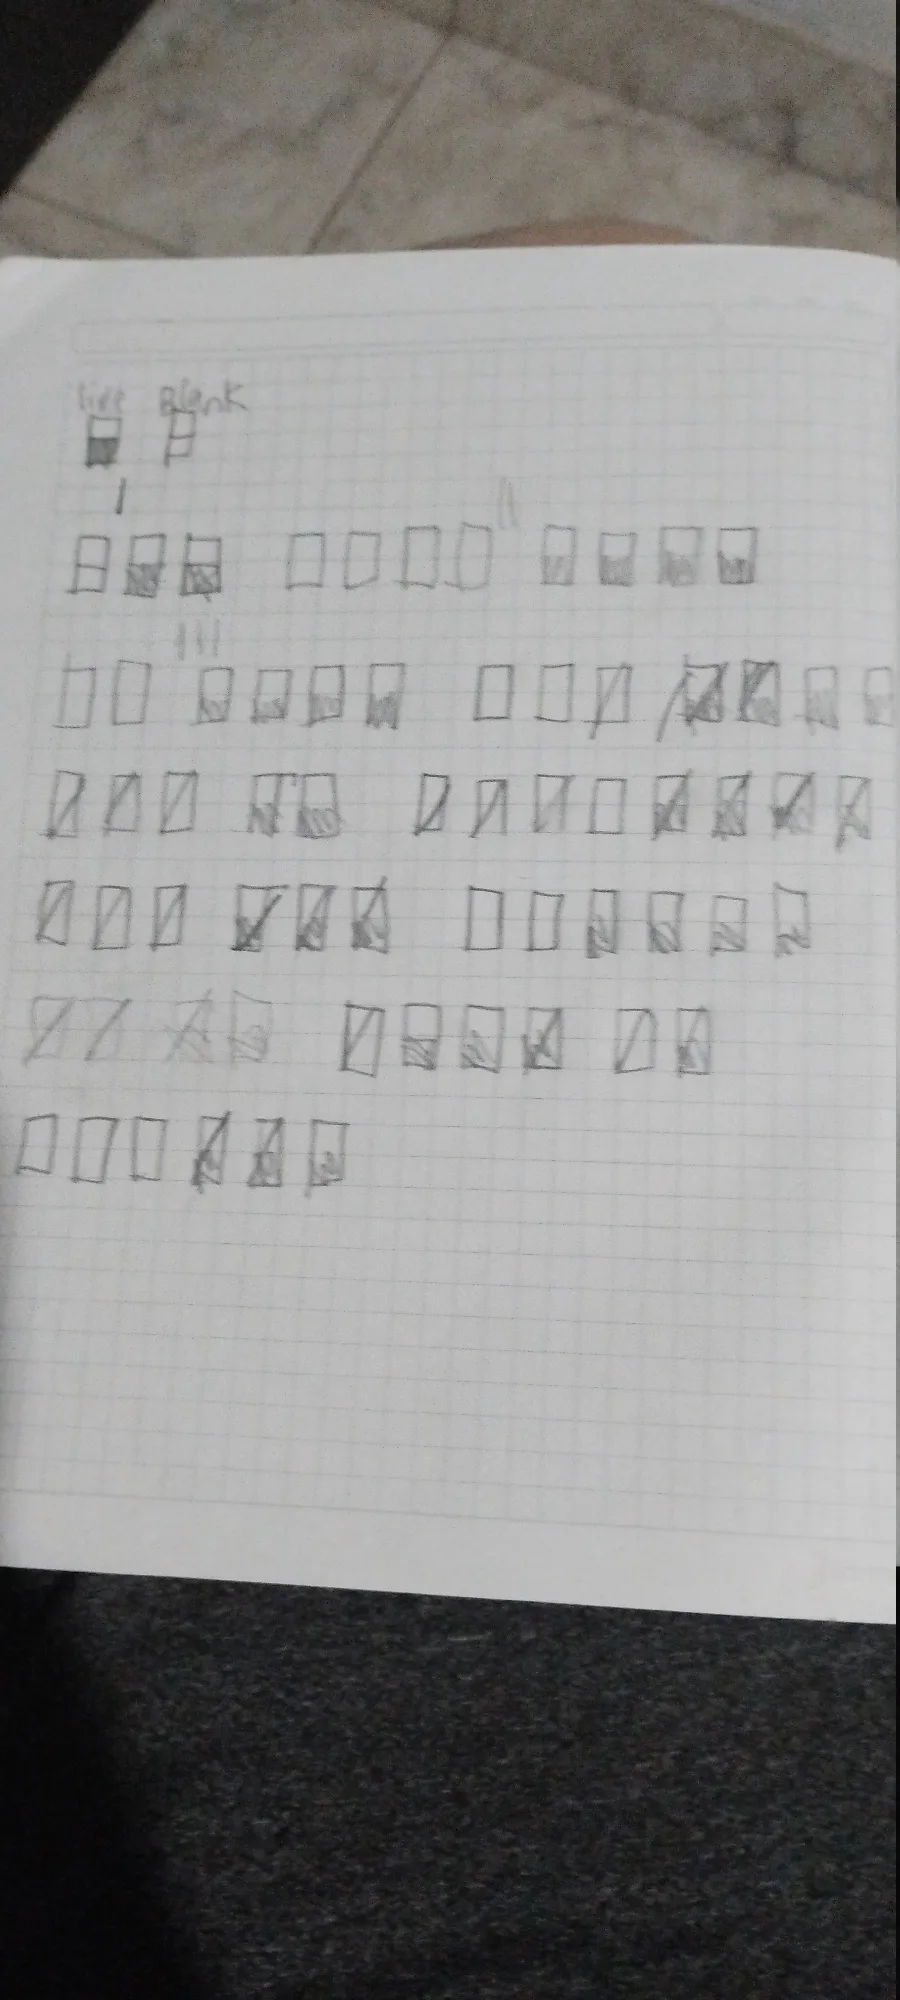 live Blank
I
II
III